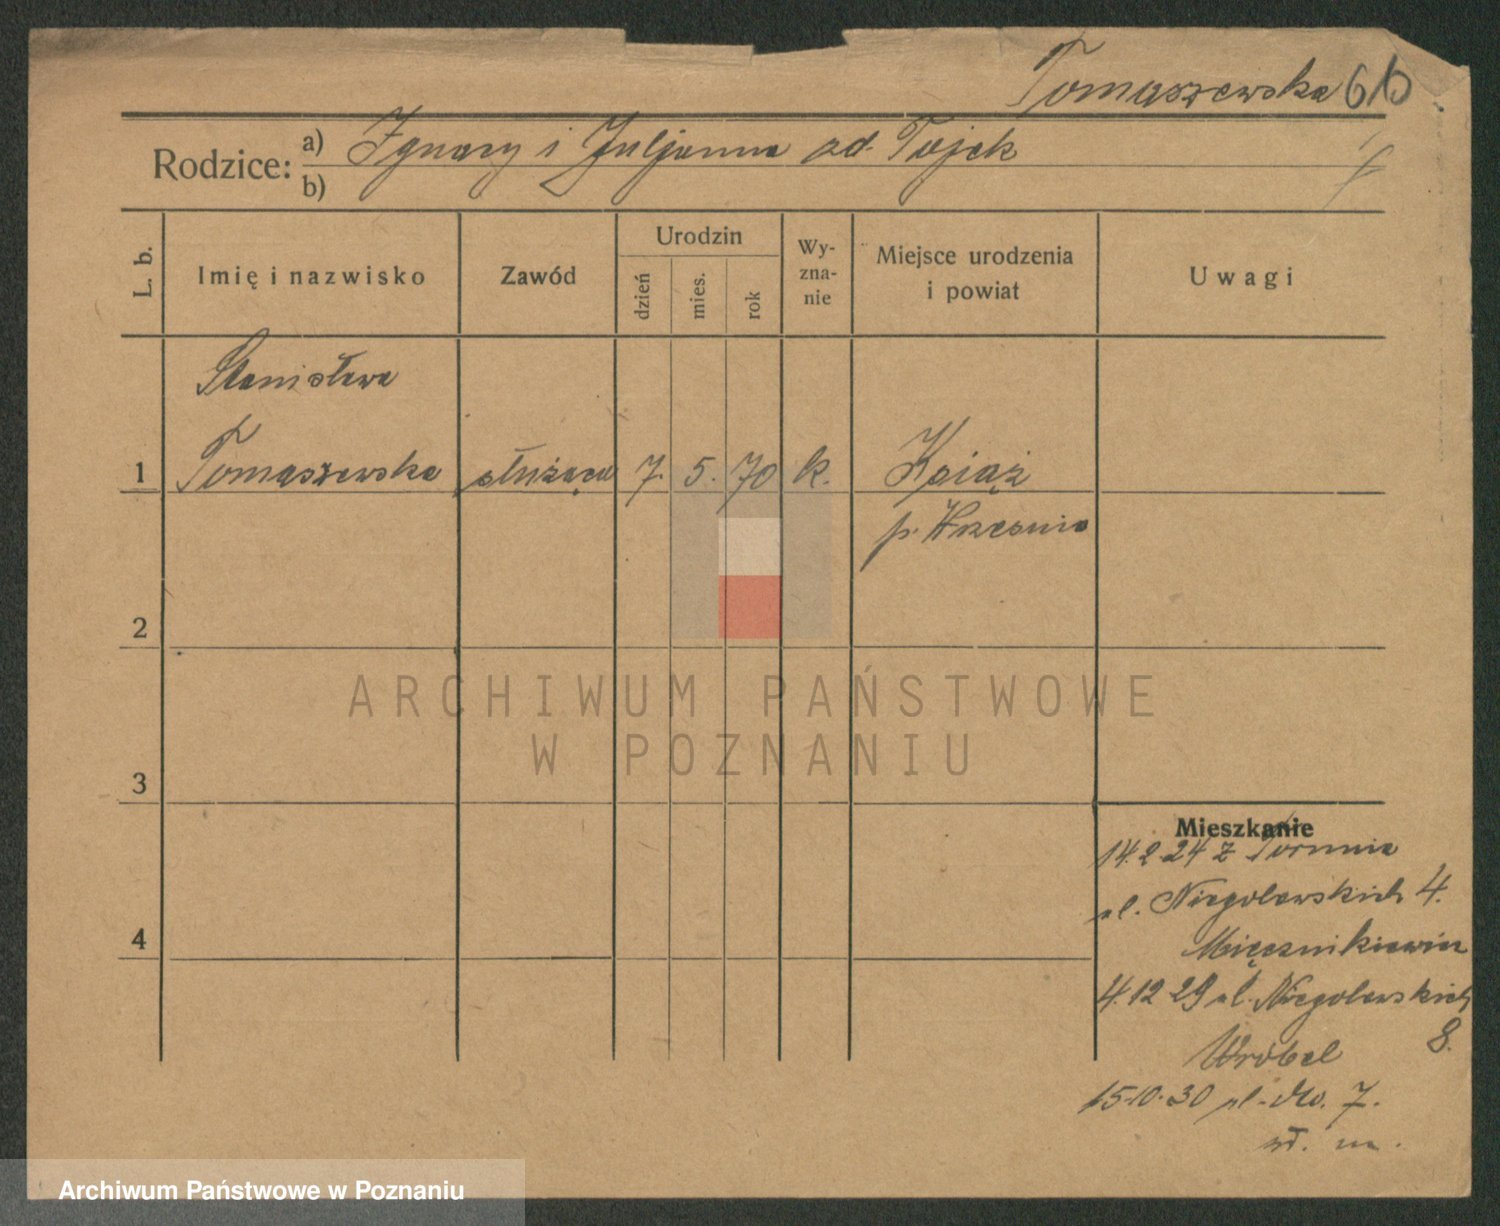 Tomaszewska 616
Rodzice: a) Ignacy i Juljanna zd. Tajek
b)
L. b.
Imię i nazwisko
Zawód
Urodzin
dzień
mies.
rok
Wy-
zna-
nie
Miejsce urodzenia
i powiat
Uwagi
Stanisława
1 Tomaszewska służąca 7. 5. 70 k. Książ
p. Września
2
3
4
Mieszkanie
14.2.24 z Torunia
pl. Niegolewskich 4.
Mięcznikiewicz
4.12.29 pl. Niegolewskich
8.
Wróbel
15.10.30 pl. 7.
wł. m.
ARCHIWUM PAŃSTWOWE
W POZNANIU
Archiwum Państwowe w Poznaniu